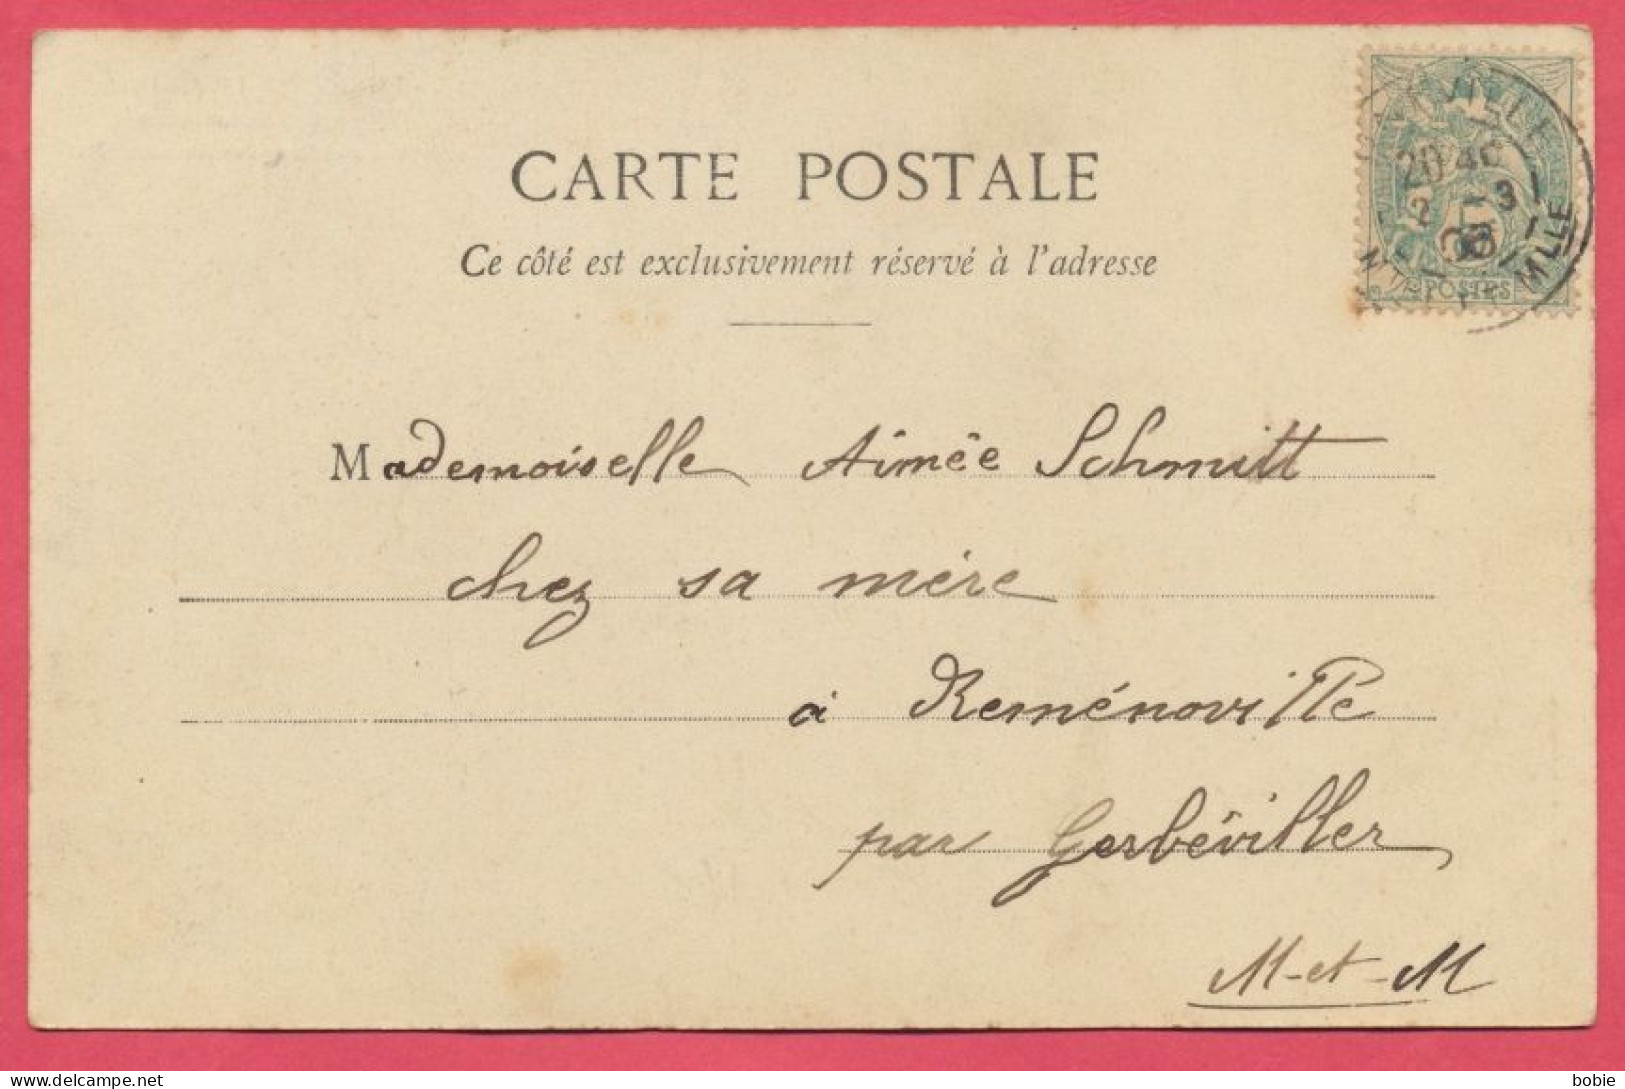 CARTE POSTALE
Ce côté est exclusivement réservé à l'adresse
POSTES
Mademoiselle Aimée Schmitt
chez sa mère
à Reménoville
par Gerbéviller
M-et-M
delcampe.net
bobie